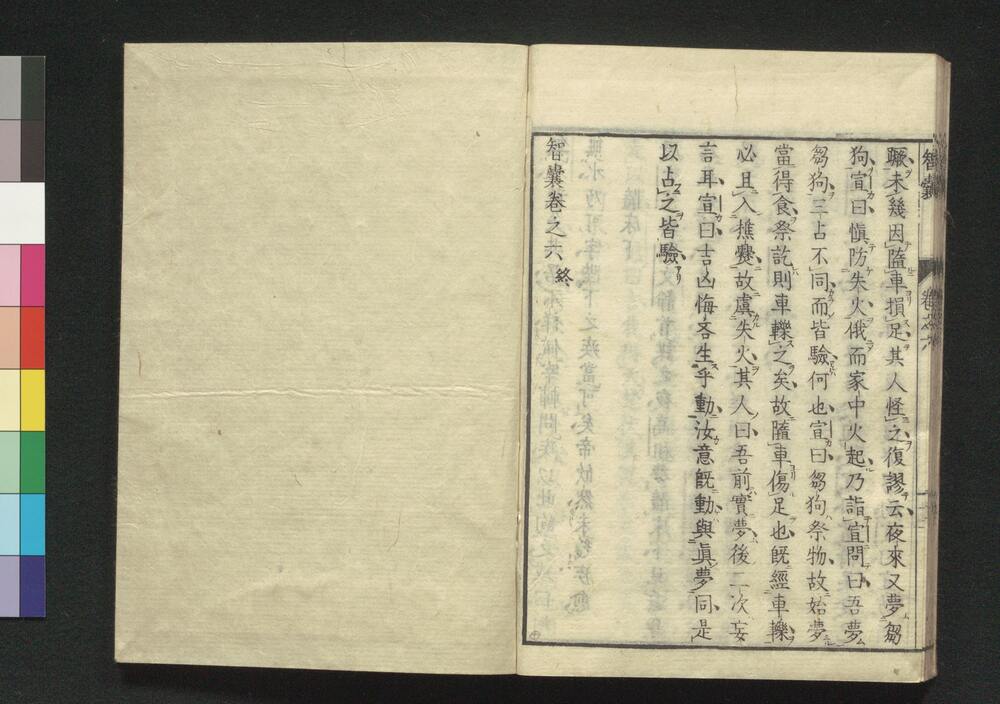 智囊 卷之六
蹶未幾因墮車損足其人怪之復謬云夜來又夢芻
狗宣曰愼防失火俄而家中火起乃詣宣問曰吾夢
芻狗三占不同而皆驗何也宣曰芻狗祭物故始夢
當得食祭訖則車轢之矣故墮車傷足也既經車轢
必且入樵爨故虞失火其人曰吾前實夢後二次妄
言耳宣曰吉凶悔吝生乎動汝意既動與眞夢同是
以占之皆驗
智囊卷之六 終